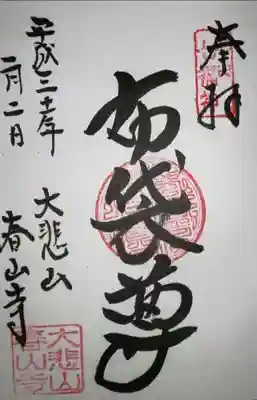 奉拝
布袋尊
大悲山
春山寺
平成三十一年
一月二日
大悲山
春山寺